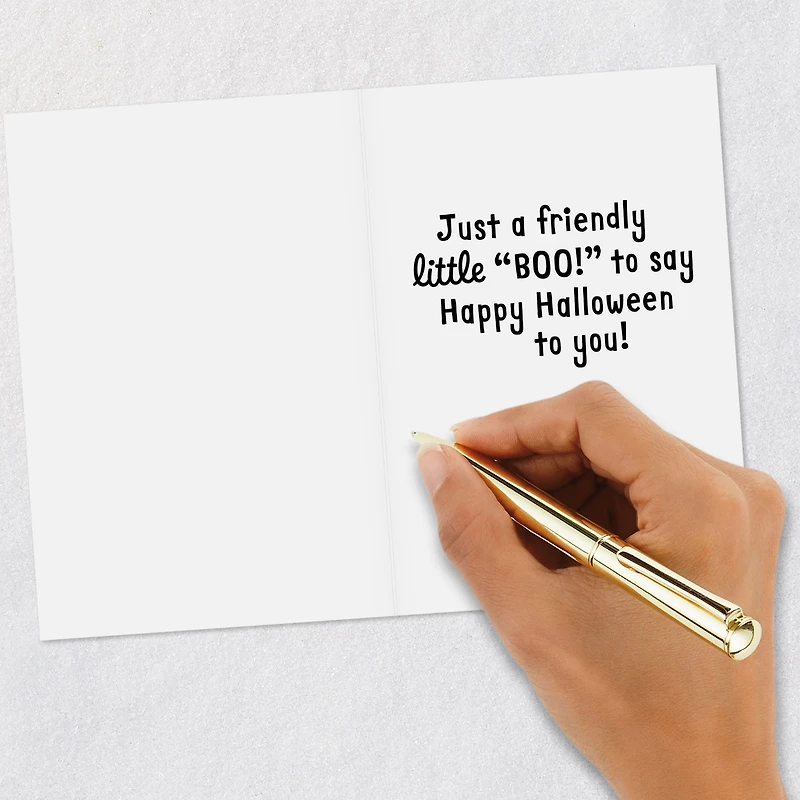 Just a friendly
little “BOO!” to say
Happy Halloween
to you!